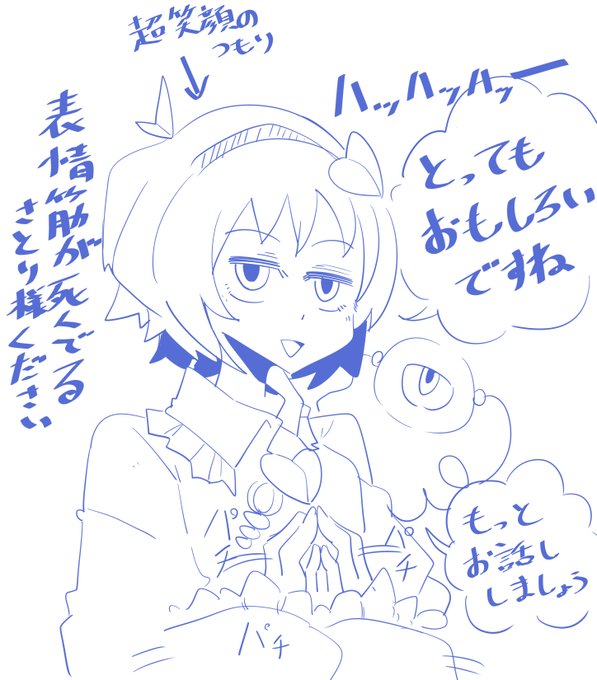 超笑顔の
つもり
ハッハッハッー
とっても
おもしろい
ですね
表情筋が死んでる
さとり様ください
もっと
お話し
しましょう
パチ
パチ
パチ